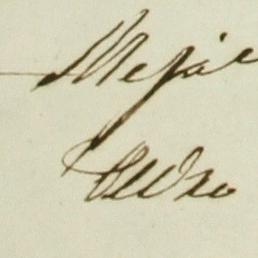 Mejia
Pedro